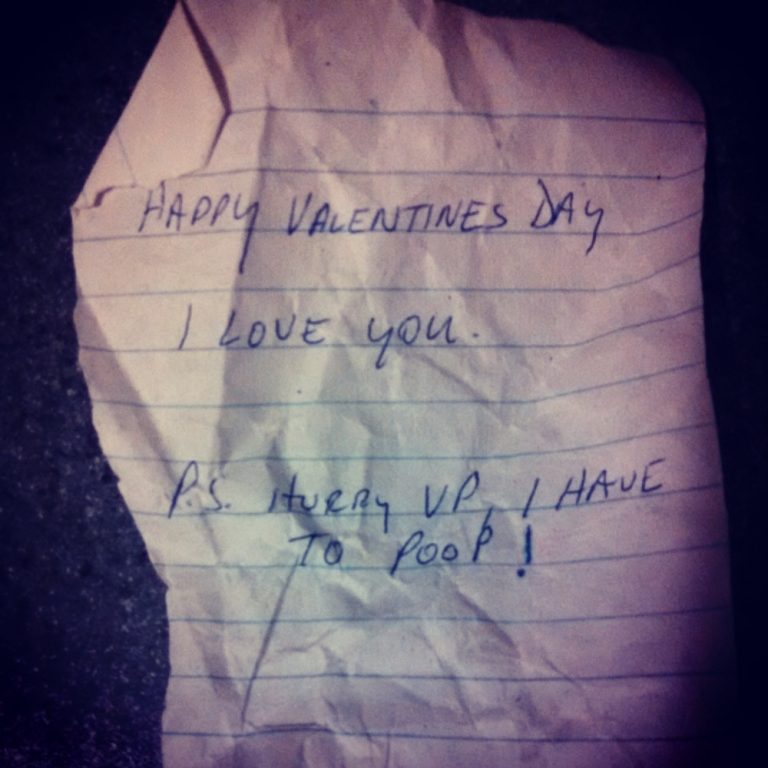 HAPPY VALENTINES DAY
I LOVE YOU.
P.S. HURRY UP, I HAVE
TO POOP!